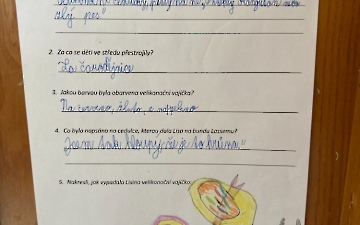 zlý pes"
2. Za co se děti ve středu přestrojily?
Za čarodějnice
3. Jakou barvou byla obarvena velikonoční vajíčka?
Na červeno, žluto, a
4. Co bylo napsáno na cedulce, kterou dala Lisa na bundu Lassemu?
"Jsem tak hloupý, že je to hrůza"
5. Nakresli, jak vypadalo Lisino velikonoční vajíčko: